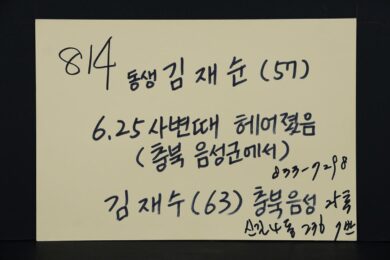 814
동생 김재순 (57)
6.25 사변때 헤어졌음
(충북 음성군에서)
833-7298
김재수 (63) 충북음성
신길4동 236